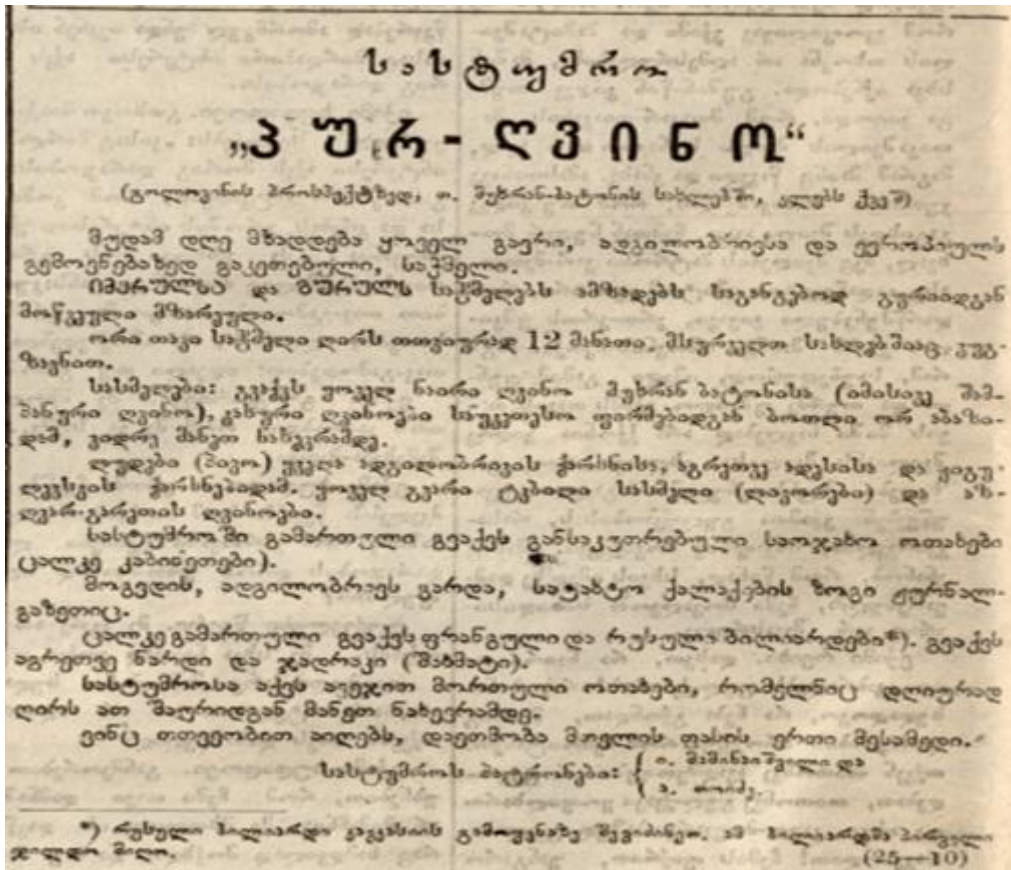 სასტუმრო
„პურ-ღვინო“
(გოლოვინის პროსპექტზედ, ი. მუხრან-ბატონის სახლებში, კლუბს ქვეშ)
მუდამ დღე მზადდება ყოველ გვარი, ადგილობრივსა და ევროპიულს
გემოვნებაზედ გაკეთებული, საჭმელი.
იმერულსა და გურულს საჭმელებს ამზადებს საგანგებოდ გურიიდგან
მოწვეული მზარეული.
ორი თავი საჭმელი ღირს თთვიურად 12 მანათი, მსურველთ სახლებშიაც ვუგ-
ზავნით.
სასმელები: გვაქვს ყოველ ნაირი ღვინო მუხრან ბატონისა (იმისივე შამ-
პანური ღვინო), კახური ღვინოები საუკეთესო ფირმებიდგან ბოთლი ორ აბაზი-
დამ, ვიდრე მანეთ ნახევრამდე.
ლუდები (პივო) ყველა ადგილობრივის ქარხნისა, აგრეთვე ადესისა და ჟიგუ-
ლევსკის ქარხნებიდამ. ყოველ გვარი ტკბილი სასმელი (ლიკორები) და საზ-
ღვარ-გარეთის ღვინოები.
სასტუმროში გამართული გვაქვს განსაკუთრებული საოჯახო ოთახები
ცალკე კაბინეთები).
მოგვდის, ადგილობრივს გარდა, სატახტო ქალაქების ზოგი ჟურნალ-
გაზეთიც.
ცალკე გამართული გვაქვს ფრანგული და რუსული ბილიარდები*). გვაქვს
აგრეთვე ნარდი და ჯადრაკი (შახმატი).
სასტუმროსა აქვს ავეჯით მორთული ოთახები, რომელნიც დღიურად
ღირს ათ შაურიდგან მანეთ ნახევრამდე.
ვინც თთვეობით აიღებს, დაეთმობა მთელის ფასის ერთი მესამედი.
სასტუმროს პატრონები: { ი. მამინაიშვილი და
*) რუსული ბილიარდი კავკასიის გამოფენაზე შევიძინეთ. ამ ბილიარდმა პირველი
ჯილდო მიიღო.
(25—10)